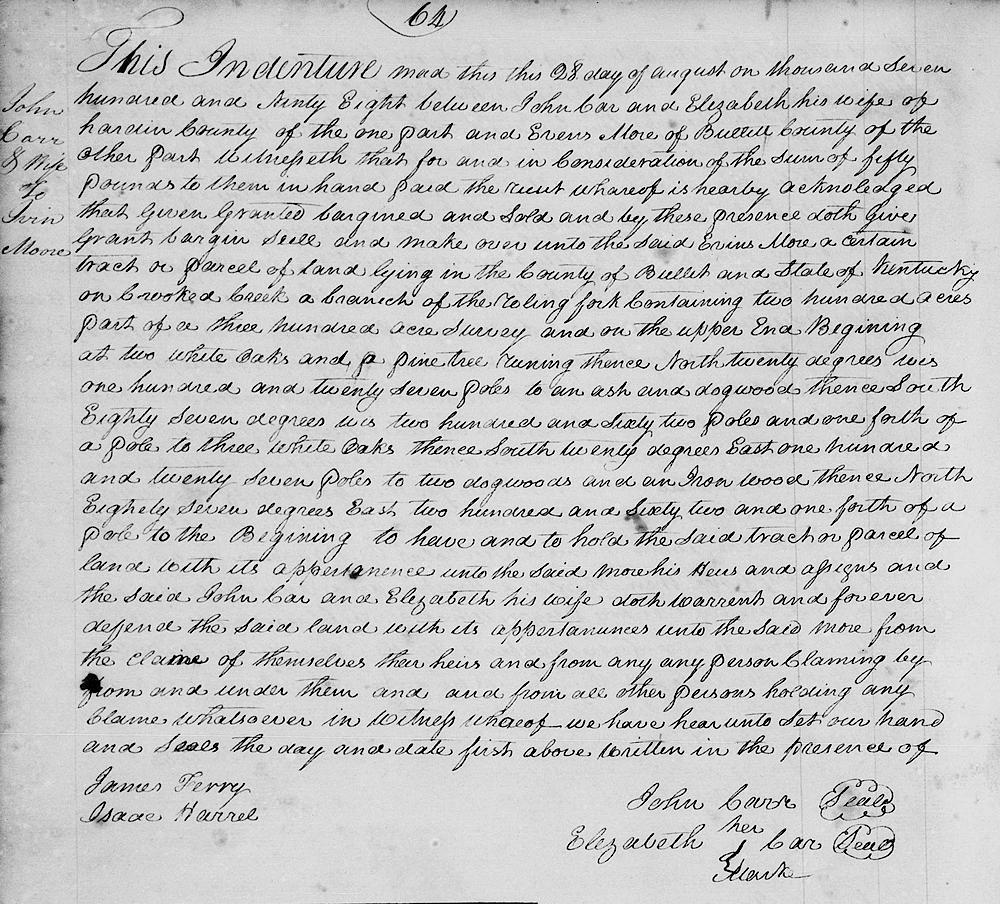 64
John
Carr
& Wife
To
Ivin
Moore
This Indenture mad this this 28 day of august on thousand Seven
hundred and Ninty Eight between John Car and Elezabeth his wife of
hardin County of the one part and Evens More of Bullit County of the
other part Witnesseth that for and in Consideration of the Sum of fifty
pounds to them in hand paid the recut whareof is hearby acknoledged
that Given Granted bargined and Sold and by these presence doth Give
Grant bargin Sell and make over unto the Said Evins More a certain
tract or parcel of land lying in the County of Bullit and State of Kentucky
on Crooked Creek a branch of the roling fork Containing two hundred acres
part of a three hundred acre Survey and on the upper End Begining
at two white Oaks and a pine tree runing thence North twenty degrees wis
one hundred and twenty Seven poles to an ash and dogwood thence South
Eighty Seven degrees wis two hundred and Sixty two poles and one forth of
a pole to three white Oaks thence South twenty degrees East one hundred
and twenty Seven poles to two dogwoods and an Iron wood thence North
Eighety Seven degrees East two hundred and Sixty two and one forth of a
pole to the Begining to have and to hold the Said tract or parcel of
land with its appertanence unto the Said More his Heus and assigns and
the Said John Car and Elezabeth his wife doth warrent and for ever
defend the Said land with its appertanunces unto the Said More from
the clame of themselves thear heirs and from any any person Claming by
from and under them and and from all other persons holding any
Clame whatsoever in Witness whareof we have hear unto Set our hand
and Seales the day and date first above Written in the presence of
James Terry
Isaac Harrel
John Carr Seale
her
Elezabeth Car Seal
Mark